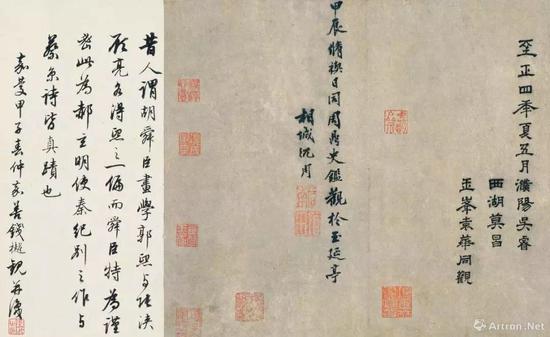 至正四年夏五月濮陽吳睿
西湖莫昌
玉峯袁華同觀
甲辰脩禊日同周鼎史鑑觀於玉延亭
相城沈周
昔人謂胡舜臣畫學郭熙與張浹
顧亮各得熙之一偏而舜臣特為謹
密此為郝玄明使秦紀別之作与
蔡京詩皆真蹟也
嘉慶甲子春仲嘉善錢樾觀并識
Artron.Net